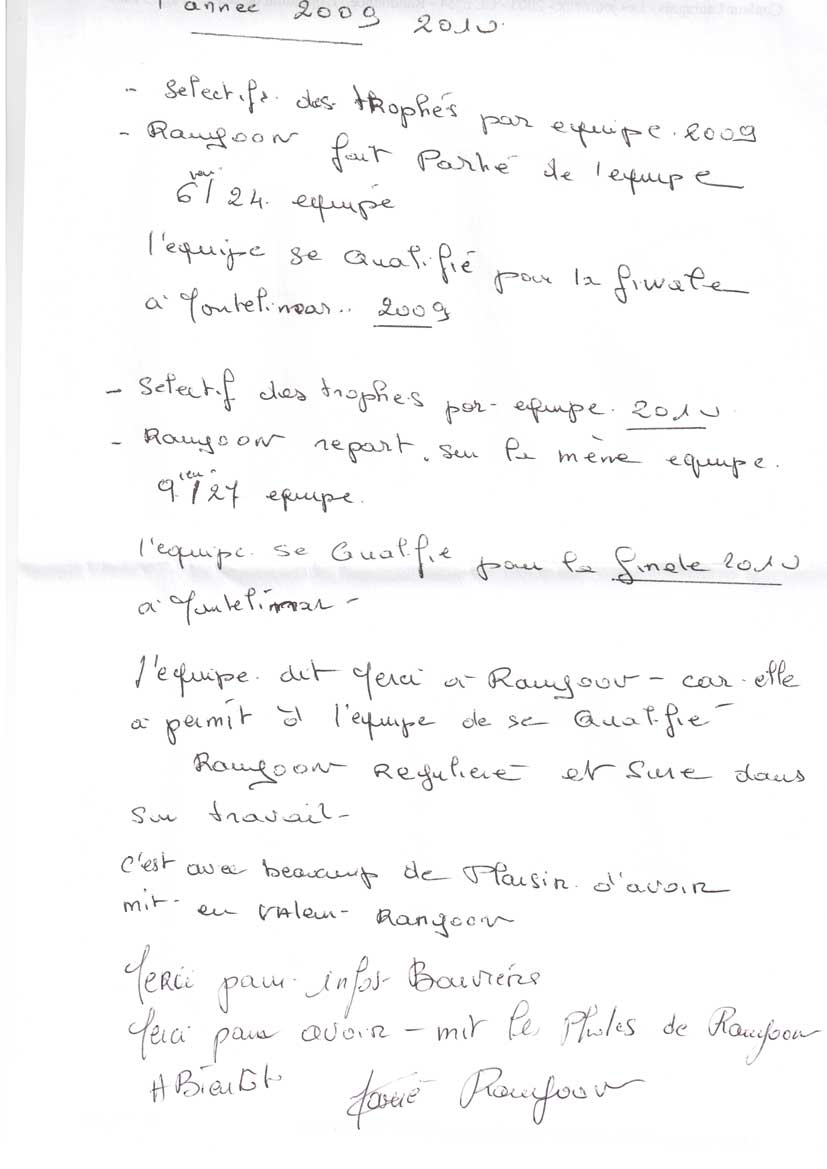 l'année 2009 2010
- Selectifs des tRophés par equipe. 2009
- Rangoon fait Partie de l'equipe
6 / 24. equipe
l'equipe se Qualifié pour la finale
a Montelimar.. 2009
- Selectif des trophes par equipe. 2010
- Rangoon repart. sur la même equipe.
9 / 27 equipe.
l'equipe se Qualfie pour la finale 2010
a Montelimar -
l'equipe dit Merci a Rangoon - car elle
a permit à l'equipe de se Qualifié
Rangoon Reguliere et Sure dans
son travail -
c'est avec beaucoup de Plaisir d'avoir
mit en valeur - Rangoon
Merci pour infos Bouviers
Merci pour avoir - mit les Photos de Rangoon
A Bientôt Rangoon